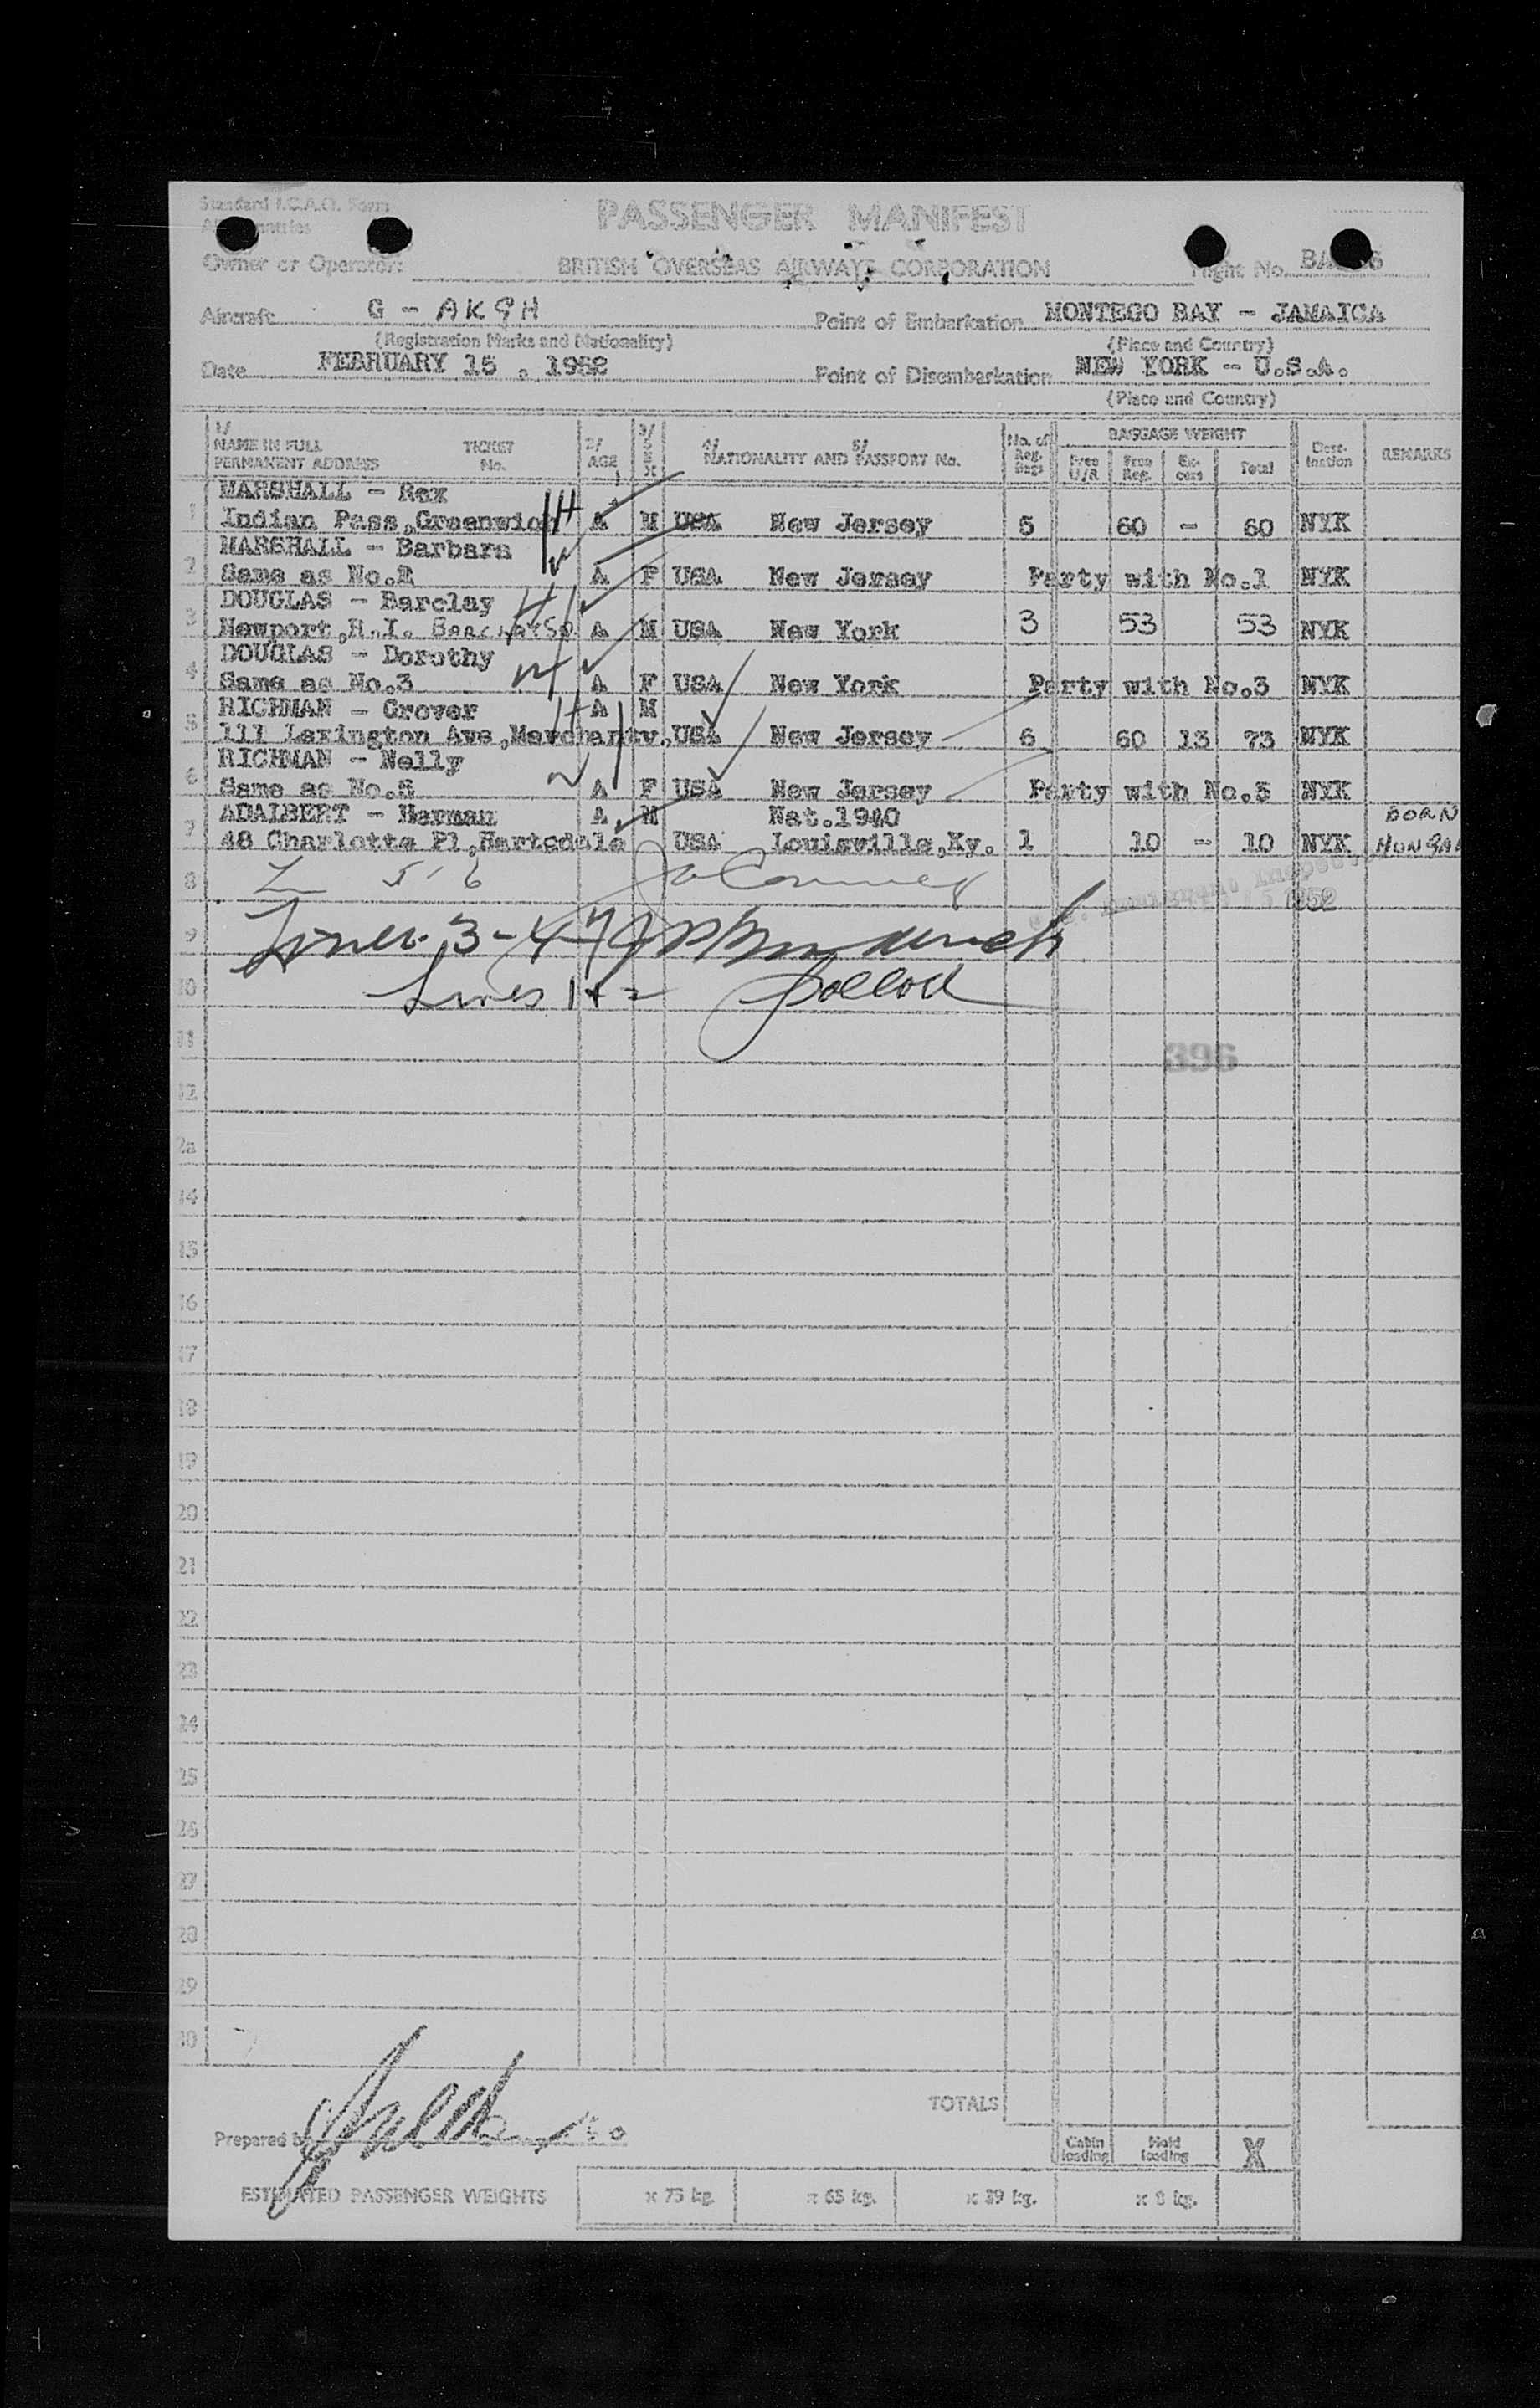 Standard I.C.A.O. Form
PASSENGER MANIFEST
Owner or Operator: BRITISH OVERSEAS AIRWAYS CORPORATION Flight No.
Aircraft G - AKGH Point of Embarkation MONTEGO BAY - JAMAICA
(Registration Marks and Nationality) (Place and Country)
Date FEBRUARY 15, 1952 Point of Disembarkation NEW YORK - U.S.A.
(Place and Country)
1/ NAME IN FULL PERMANENT ADDRESS TICKET No. 2/ AGE 3/ SEX 4/ 5/ NATIONALITY AND PASSPORT No. No. of Reg. Bags BAGGAGE WEIGHT Free U/R Free Reg. Ex-cess Total Dest-ination REMARKS
MARSHALL - Rex
1 Indian Pass, Greenwich A M USA New Jersey 5 60 - 60 NYK
MARSHALL - Barbara
2 Same as No. A F USA New Jersey Party with No.1 NYK
DOUGLAS - Barclay
3 Newport, R.I. A M USA New York 3 53 53 NYK
DOUGLAS - Dorothy
4 Same as No.3 A F USA New York Party with No.3 NYK
RICHMAN - Grover A M
5 111 Lexington Ave, USA New Jersey 6 60 13 73 NYK
RICHMAN - Nelly
6 Same as No.5 A F USA New Jersey Party with No.5 NYK
ADALBERT - Herman A M Nat.1940 BORN
7 48 Charlotte Pl, Hartsdale USA Louisville, Ky. 1 10 - 10 NYK
8 5-6 1952
9 3-4-7
10 Lines 1+2
11
396
12
14
15
16
17
18
19
20
21
22
23
24
25
26
27
28
29
30
TOTALS
Prepared by
Cabin loading Hold loading X
ESTIMATED PASSENGER WEIGHTS x 75 kg. x 65 kg. x 39 kg. x 8 kg.